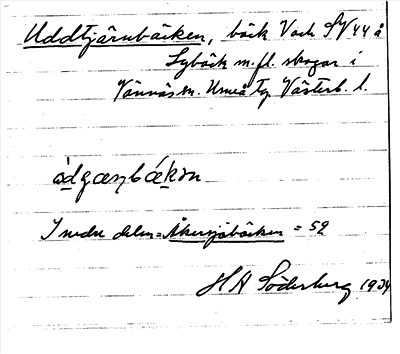 Uddtjärnbäcken, bäck V och SV 44 å
Lybäck m.fl. skogar i
Vännäs sn. Umeå tg Västerb. l.
ad̯gæŋbækən
I nedre delen = Åkersjöbäcken = 52
H A Söderberg 1934